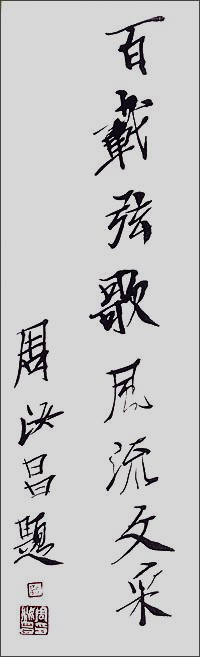 百載弦歌風流文采
周汝昌題